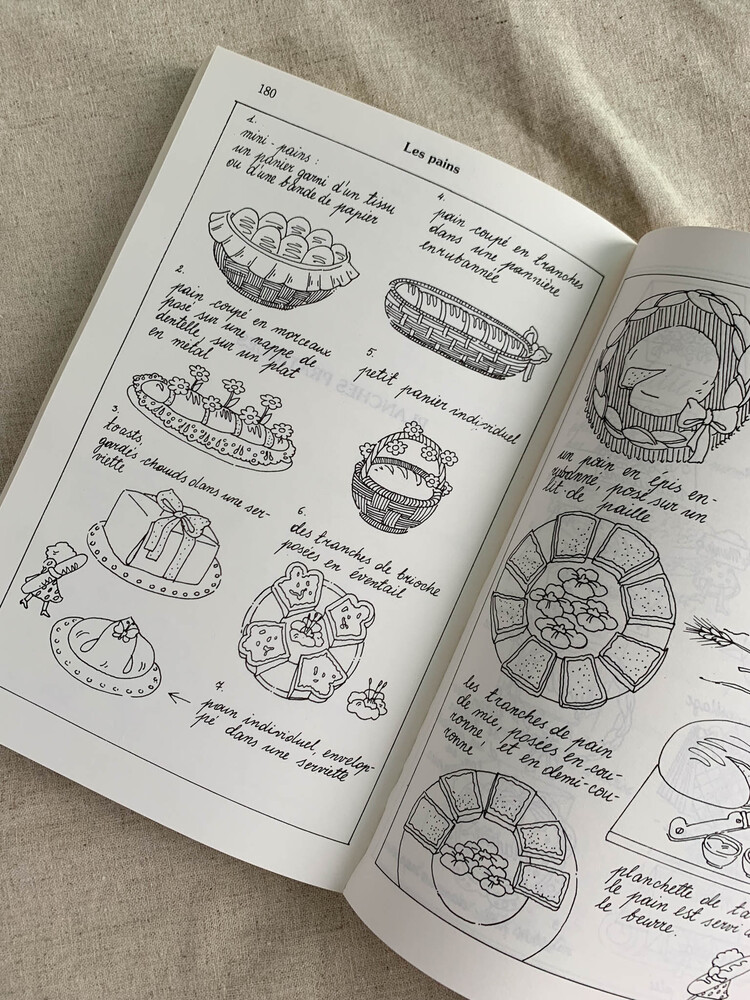 180
Les pains
1.
mini-pains :
un panier garni d'un tissu
ou d'une bande de papier
2.
pain coupé en morceaux
posé sur une nappe de
dentelle sur un plat
en métal
3.
toasts,
gardés chauds dans une ser-
viette
4.
pain coupé en tranches
dans une pannière
enrubannée
5.
petit panier individuel
6.
des tranches de brioche
posées en éventail
7.
pain individuel, envelop-
pé dans une serviette
un pain en épis en-
rubanné, posé sur un
lit de paille
les tranches de pain
de mie, posées en cou-
ronne, et en demi-cou-
ronne
planchette de
le pain est servi
le beurre.